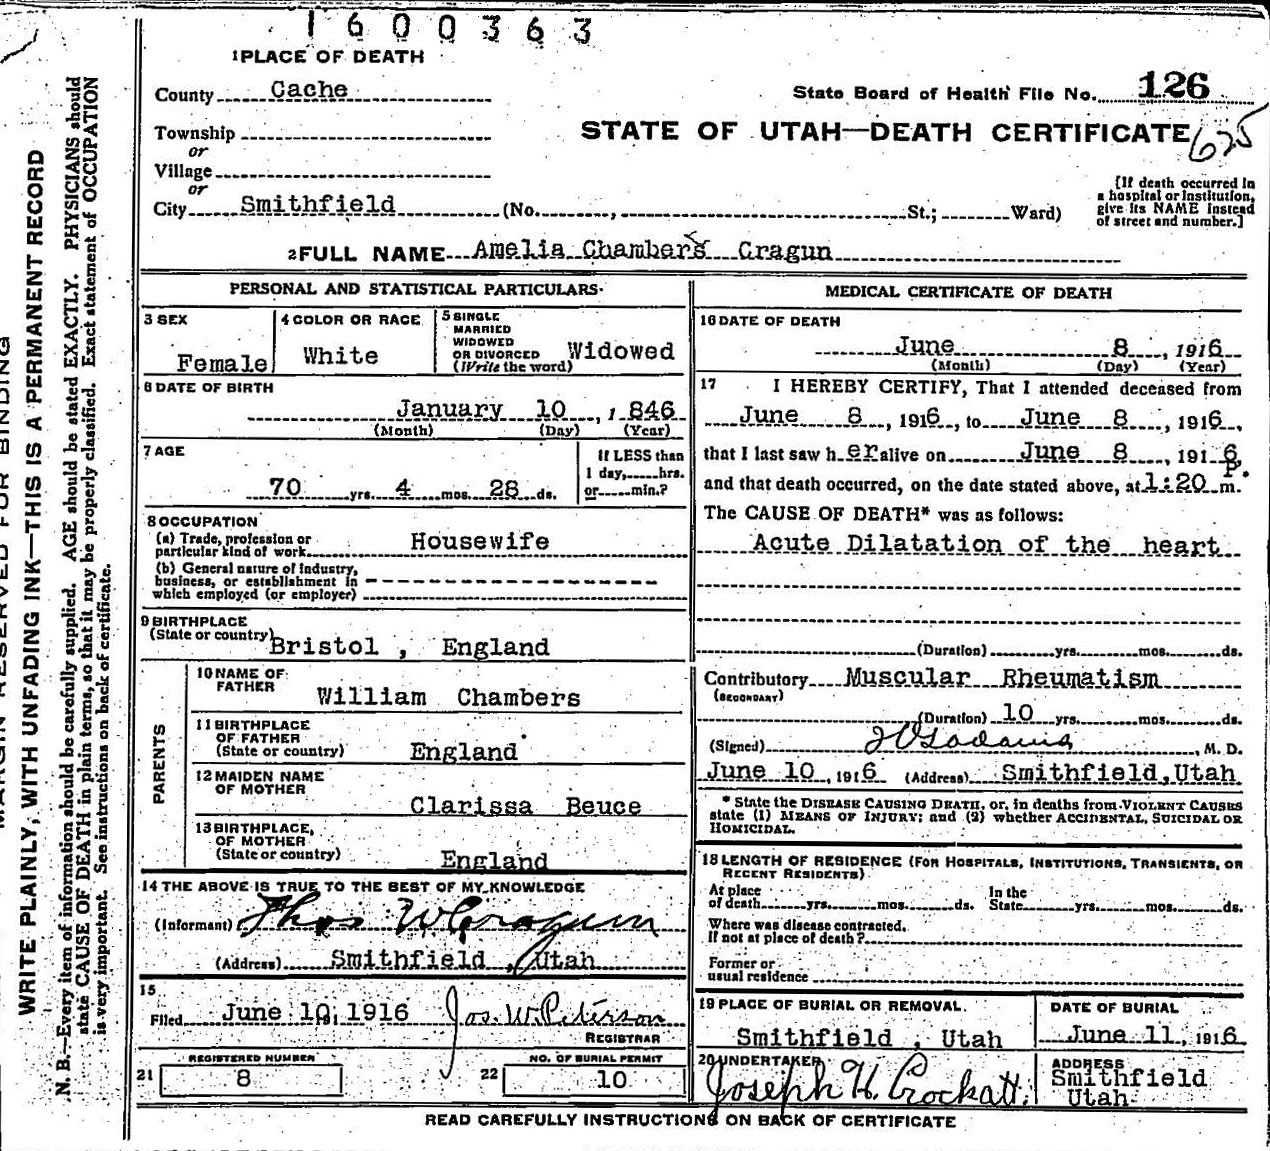 1600363
1 PLACE OF DEATH
County Cache
State Board of Health File No. 126
Township
STATE OF UTAH—DEATH CERTIFICATE 625
or
Village
or
City Smithfield (No. , St.; Ward)
[If death occurred in
a hospital or institution,
give its NAME instead
of street and number.]
2 FULL NAME Amelia Chambers Cragun
PERSONAL AND STATISTICAL PARTICULARS
3 SEX
Female
4 COLOR OR RACE
White
5 SINGLE
MARRIED
WIDOWED
OR DIVORCED
(Write the word)
Widowed
6 DATE OF BIRTH
January 10, 1846
(Month) (Day) (Year)
7 AGE
70 yrs. 4 mos. 28 ds.
If LESS than
1 day, hrs.
or min.?
8 OCCUPATION
(a) Trade, profession or
particular kind of work Housewife
(b) General nature of industry,
business, or establishment in
which employed (or employer)
9 BIRTHPLACE
(State or country) Bristol , England
PARENTS
10 NAME OF
FATHER
William Chambers
11 BIRTHPLACE
OF FATHER
(State or country) England
12 MAIDEN NAME
OF MOTHER
Clarissa Beuce
13 BIRTHPLACE,
OF MOTHER
(State or country) England
14 THE ABOVE IS TRUE TO THE BEST OF MY KNOWLEDGE
(Informant) Thos W Cragun
(Address) Smithfield , Utah
15
Filed June 10, 1916 Jos. W. Peterson
REGISTRAR
21 REGISTERED NUMBER
8
22 NO. OF BURIAL PERMIT
10
MEDICAL CERTIFICATE OF DEATH
16 DATE OF DEATH
June 8, 1916
(Month) (Day) (Year)
17 I HEREBY CERTIFY, That I attended deceased from
June 8, 1916, to June 8, 1916,
that I last saw her alive on June 8, 1916,
and that death occurred, on the date stated above, at 1:20 P. m.
The CAUSE OF DEATH* was as follows:
Acute Dilatation of the heart
(Duration) yrs. mos. ds.
Contributory Muscular Rheumatism
(SECONDARY)
(Duration) 10 yrs. mos. ds.
(Signed) , M. D.
June 10, 1916 (Address) Smithfield, Utah
* State the DISEASE CAUSING DEATH, or, in deaths from VIOLENT CAUSES
state (1) MEANS OF INJURY; and (2) whether ACCIDENTAL, SUICIDAL OR
HOMICIDAL.
18 LENGTH OF RESIDENCE (FOR HOSPITALS, INSTITUTIONS, TRANSIENTS, OR
RECENT RESIDENTS)
At place
of death yrs. mos. ds.
In the
State yrs. mos. ds.
Where was disease contracted,
If not at place of death?
Former or
usual residence
19 PLACE OF BURIAL OR REMOVAL
Smithfield , Utah
DATE OF BURIAL
June 11, 1916
20 UNDERTAKER
Joseph H. Crockatt.
ADDRESS
Smithfield
Utah
READ CAREFULLY INSTRUCTIONS ON BACK OF CERTIFICATE
MARGIN RESERVED FOR BINDING
WRITE PLAINLY, WITH UNFADING INK—THIS IS A PERMANENT RECORD
N. B.—Every item of information should be carefully supplied. AGE should be stated EXACTLY. PHYSICIANS should
state CAUSE OF DEATH in plain terms, so that it may be properly classified. Exact statement of OCCUPATION
is very important. See instructions on back of certificate.